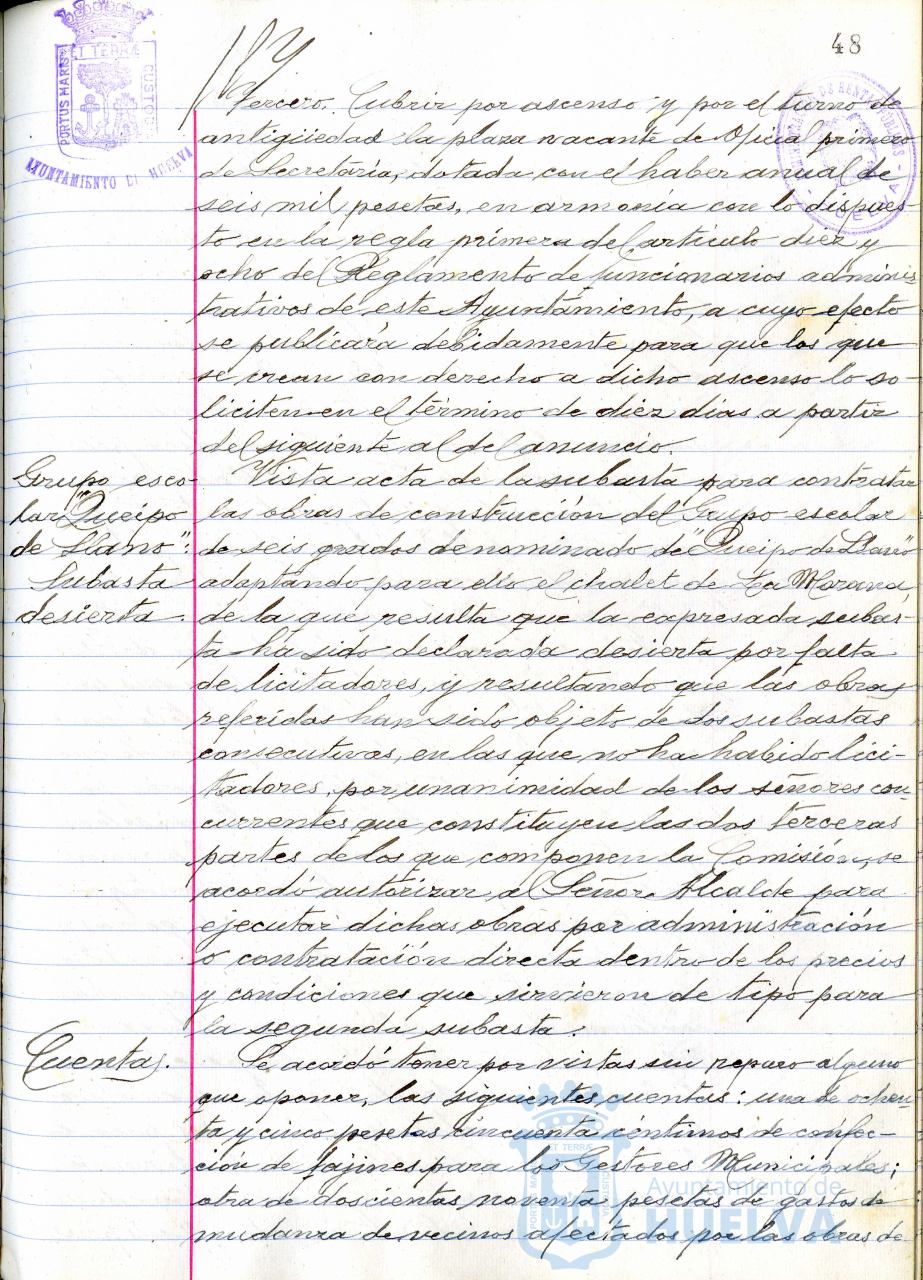 48
PORTUS MARIS ET TERRÆ CUSTODIA
AYUNTAMIENTO DE HUELVA
Tercero. Cubrir por ascenso y por el turno de
antigüedad la plaza vacante de Oficial primero
de Secretaría, dotada con el haber anual de
seis mil pesetas, en armonía con lo dispues-
to en la regla primera del artículo diez y
ocho del Reglamento de funcionarios adminis-
trativos de este Ayuntamiento, a cuyo efecto
se publicará debidamente para que los que
se crean con derecho a dicho ascenso lo so-
liciten en el término de diez días a partir
del siguiente al del anuncio.
Grupo esco-
lar "Queipo
de Llano":
Subasta
desierta.
Vista acta de la subasta para contratar
las obras de construcción del Grupo escolar
de seis grados denominado de "Queipo de Llano"
adaptando para ello el chalet de La Morana,
de la que resulta que la expresada subas-
ta ha sido declarada desierta por falta
de licitadores, y resultando que las obras
referidas han sido objeto de dos subastas
consecutivas, en las que no ha habido lici-
tadores, por unanimidad de los señores con-
currentes que constituyen las dos terceras
partes de los que componen la Comisión, se
acordó autorizar al Señor Alcalde para
ejecutar dichas obras por administración
o contratación directa dentro de los precios
y condiciones que sirvieron de tipo para
la segunda subasta.
Cuentas.
Se acordó tener por vistas sin reparo alguno
que oponer, las siguientes cuentas: una de ochen-
ta y cinco pesetas cincuenta céntimos de confec-
ción de fajines para los Gestores Municipales;
otra de doscientas noventa pesetas de gastos de
mudanza de vecinos afectados por las obras de
Ayuntamiento de
HUELVA